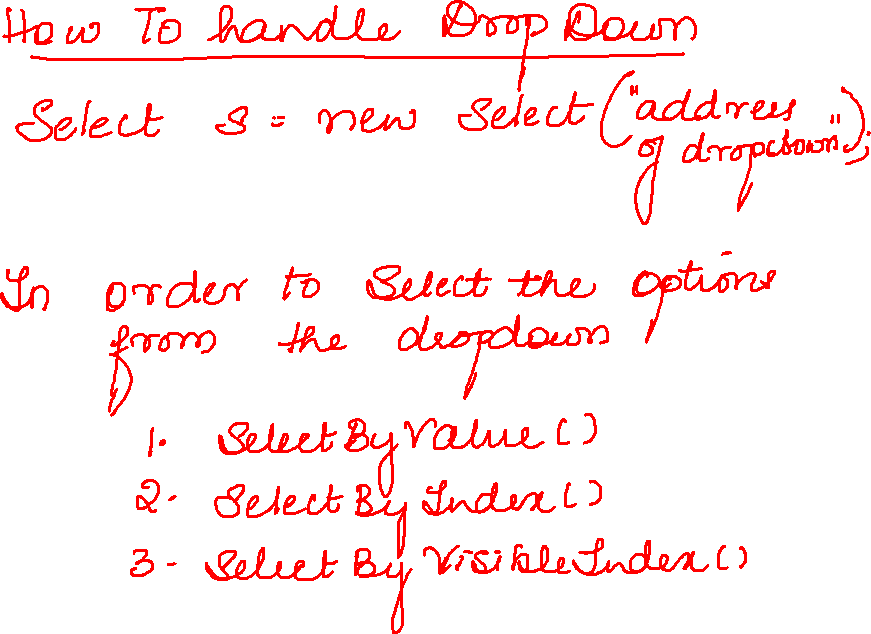 How To handle Drop Down
Select s = new Select ("address
of dropdown");
In order to Select the options
from the dropdown
1. Select By Value ()
2. Select By Index ()
3. Select By Visible Index ()